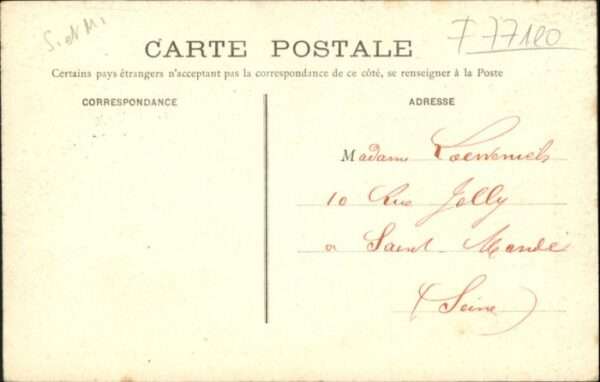 S. et M.
77120
CARTE POSTALE
Certains pays étrangers n'acceptant pas la correspondance de ce côté, se renseigner à la Poste
CORRESPONDANCE
ADRESSE
Madame
10 Rue Jolly
a Saint-Mandé
(Seine)